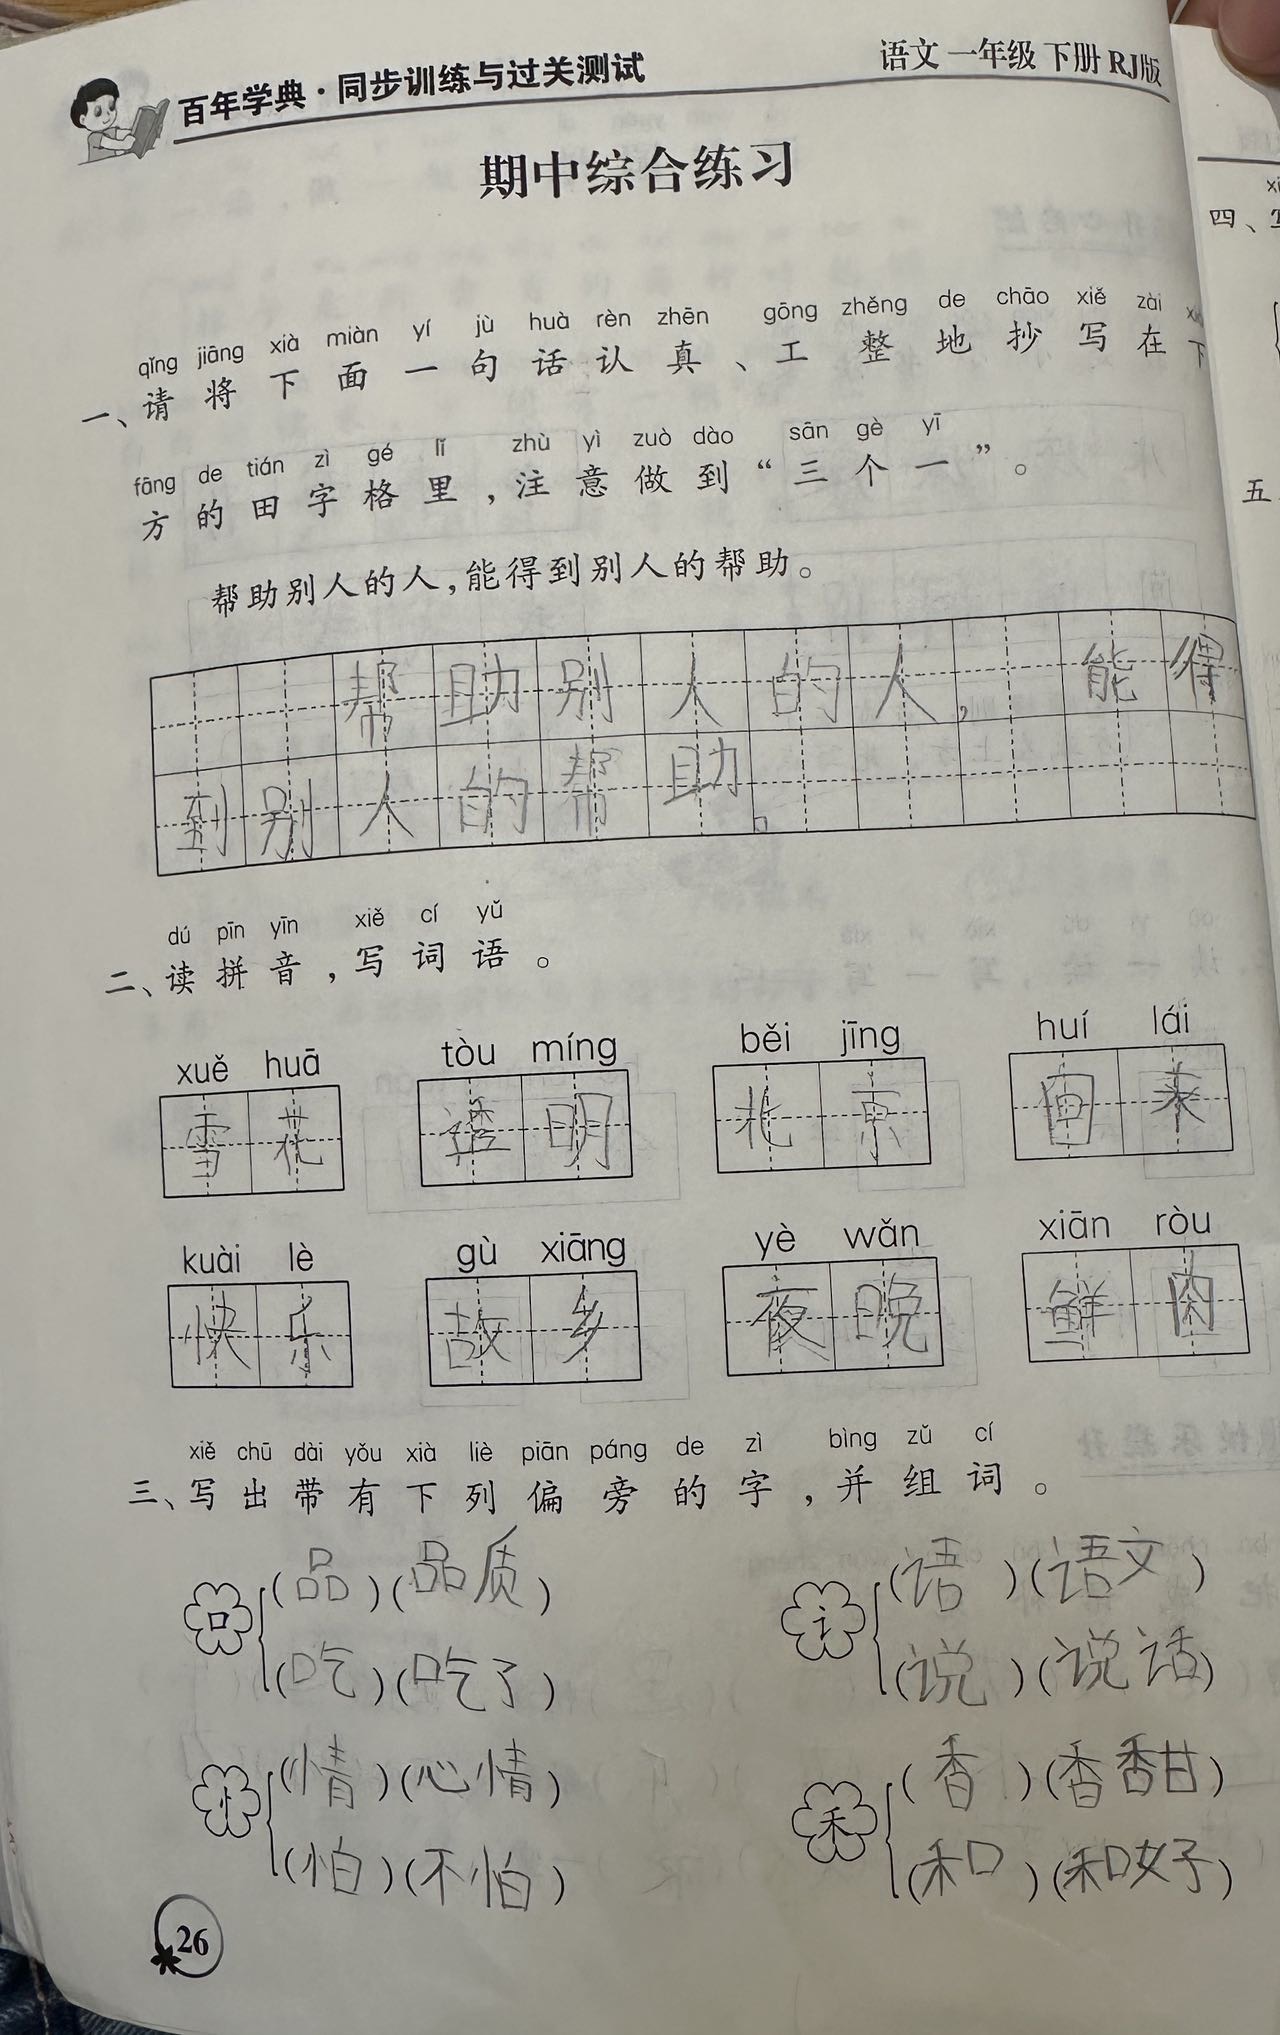 百年学典·同步训练与过关测试
语文 一年级 下册 RJ版
期中综合练习
qǐng jiāng xià miàn yí jù huà rèn zhēn gōng zhěng de chāo xiě zài
一、请将下面一句话认真、工整地抄写在下
fāng de tián zì gé lǐ zhù yì zuò dào sān gè yī
方的田字格里，注意做到“三个一”。
帮助别人的人，能得到别人的帮助。
帮助别人的人，能得
到别人的帮助。
dú pīn yīn xiě cí yǔ
二、读拼音，写词语。
xuě huā tòu míng běi jīng huí lái
雪花 透明 北京 来
kuài lè gù xiāng yè wǎn xiān ròu
快乐 故乡 夜晚 鲜肉
xiě chū dài yǒu xià liè piān páng de zì bìng zǔ cí
三、写出带有下列偏旁的字，并组词。
口 (品)(品质) 讠 (语)(语文)
(吃)(吃了) (说)(说话)
忄 (情)(心情) 禾 (香)(香甜)
(怕)(不怕) (和)(和好)
26
四、
五